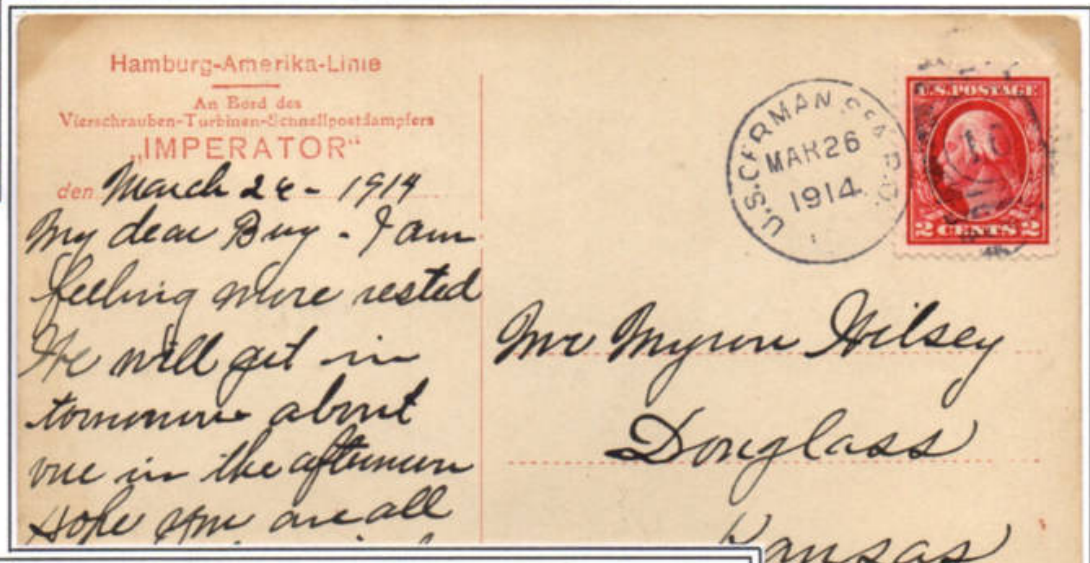 Hamburg-Amerika-Linie
An Bord des
Vierschrauben-Turbinen-Schnellpostdampfers
„IMPERATOR“
den March 26 - 1914
My dear Boy - I am
feeling more rested
We will get in
tomorrow about
one in the afternoon
Hope you are all
U.S. GERMAN SEA P.O.
MAR 26
1914
U.S. POSTAGE
2 CENTS 2
Mr Myron Hilsey
Douglass
Kansas